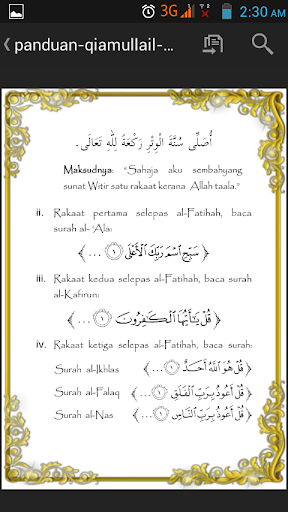 3G 2:30 AM
panduan-qiamullail-...
أُصَلِّى سُنَّةَ الْوِتْرِ رَكْعَةً لِلّٰهِ تَعَالَى.
Maksudnya: "Sahaja aku sembahyang
sunat Witir satu rakaat kerana Allah taala."
ii. Rakaat pertama selepas al-Fatihah, baca
surah al-'Ala:
﴿ سَبِّحِ اسْمَ رَبِّكَ الْأَعْلَى ۝١ ... ﴾
iii. Rakaat kedua selepas al-Fatihah, baca surah
al-Kafirun:
﴿ قُلْ يَا أَيُّهَا الْكَافِرُونَ ۝١ ... ﴾
iv. Rakaat ketiga selepas al-Fatihah, baca surah:
Surah al-Ikhlas ﴿ قُلْ هُوَ اللَّهُ أَحَدٌ ۝١ ... ﴾
Surah al-Falaq ﴿ قُلْ أَعُوذُ بِرَبِّ الْفَلَقِ ۝١ ... ﴾
Surah al-Nas ﴿ قُلْ أَعُوذُ بِرَبِّ النَّاسِ ۝١ ... ﴾